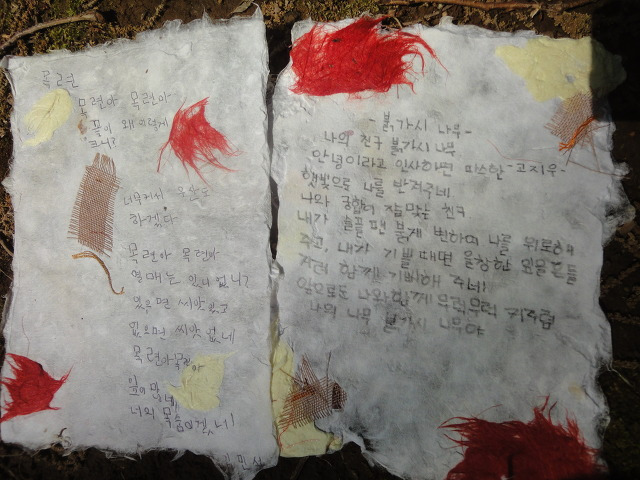 목련
목련아 목련아
꽃이 왜 그렇게
크니?
너무커서 우산도
하겠다
목련아 목련아
열매는 있니 없니?
있으면 씨앗 있고
없으면 씨앗 없네
목련아 목련아
잎이 많네
너의 목숨이겠네!
민서
-붉가시 나무-
나의 친구 붉가시 나무 -고지우-
안녕이라고 인사하면 따스한
햇빛으로 나를 반겨주네
나와 궁합이 잘 맞는 친구
내가 슬플 땐 붉게 변하며 나를 위로해
주고, 내가 기쁠 때면 울창한 잎을 흔들
거려 함께 기뻐해 주네!
앞으로도 나와 함께 무럭무럭 자라렴
나의 나무 붉가시 나무야